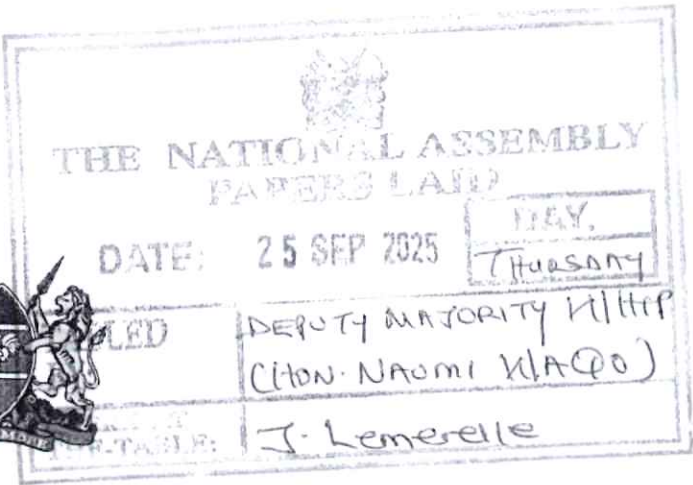 THE NATIONAL ASSEMBLY
PAPERS LAID
DATE: 25 SEP 2025
DAY.
THURSDAY
DEPUTY MAJORITY WHIP
(HON. NAOMI WAQO)
J. Lemerelle